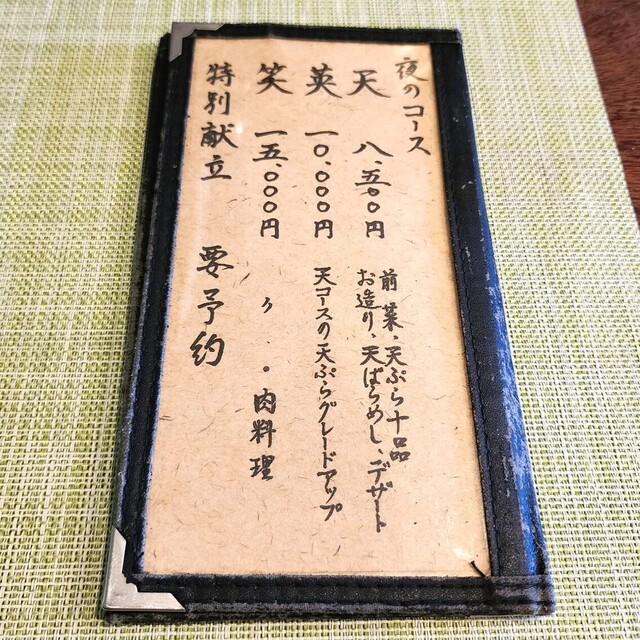 夜のコース
天 八、五〇〇円 前菜、天ぷら十品
お造り、天ばらめし、デザート
英 一〇、〇〇〇円 天コースの天ぷらグレードアップ
笑 一五、〇〇〇円 〃 ・肉料理
特別献立 要予約